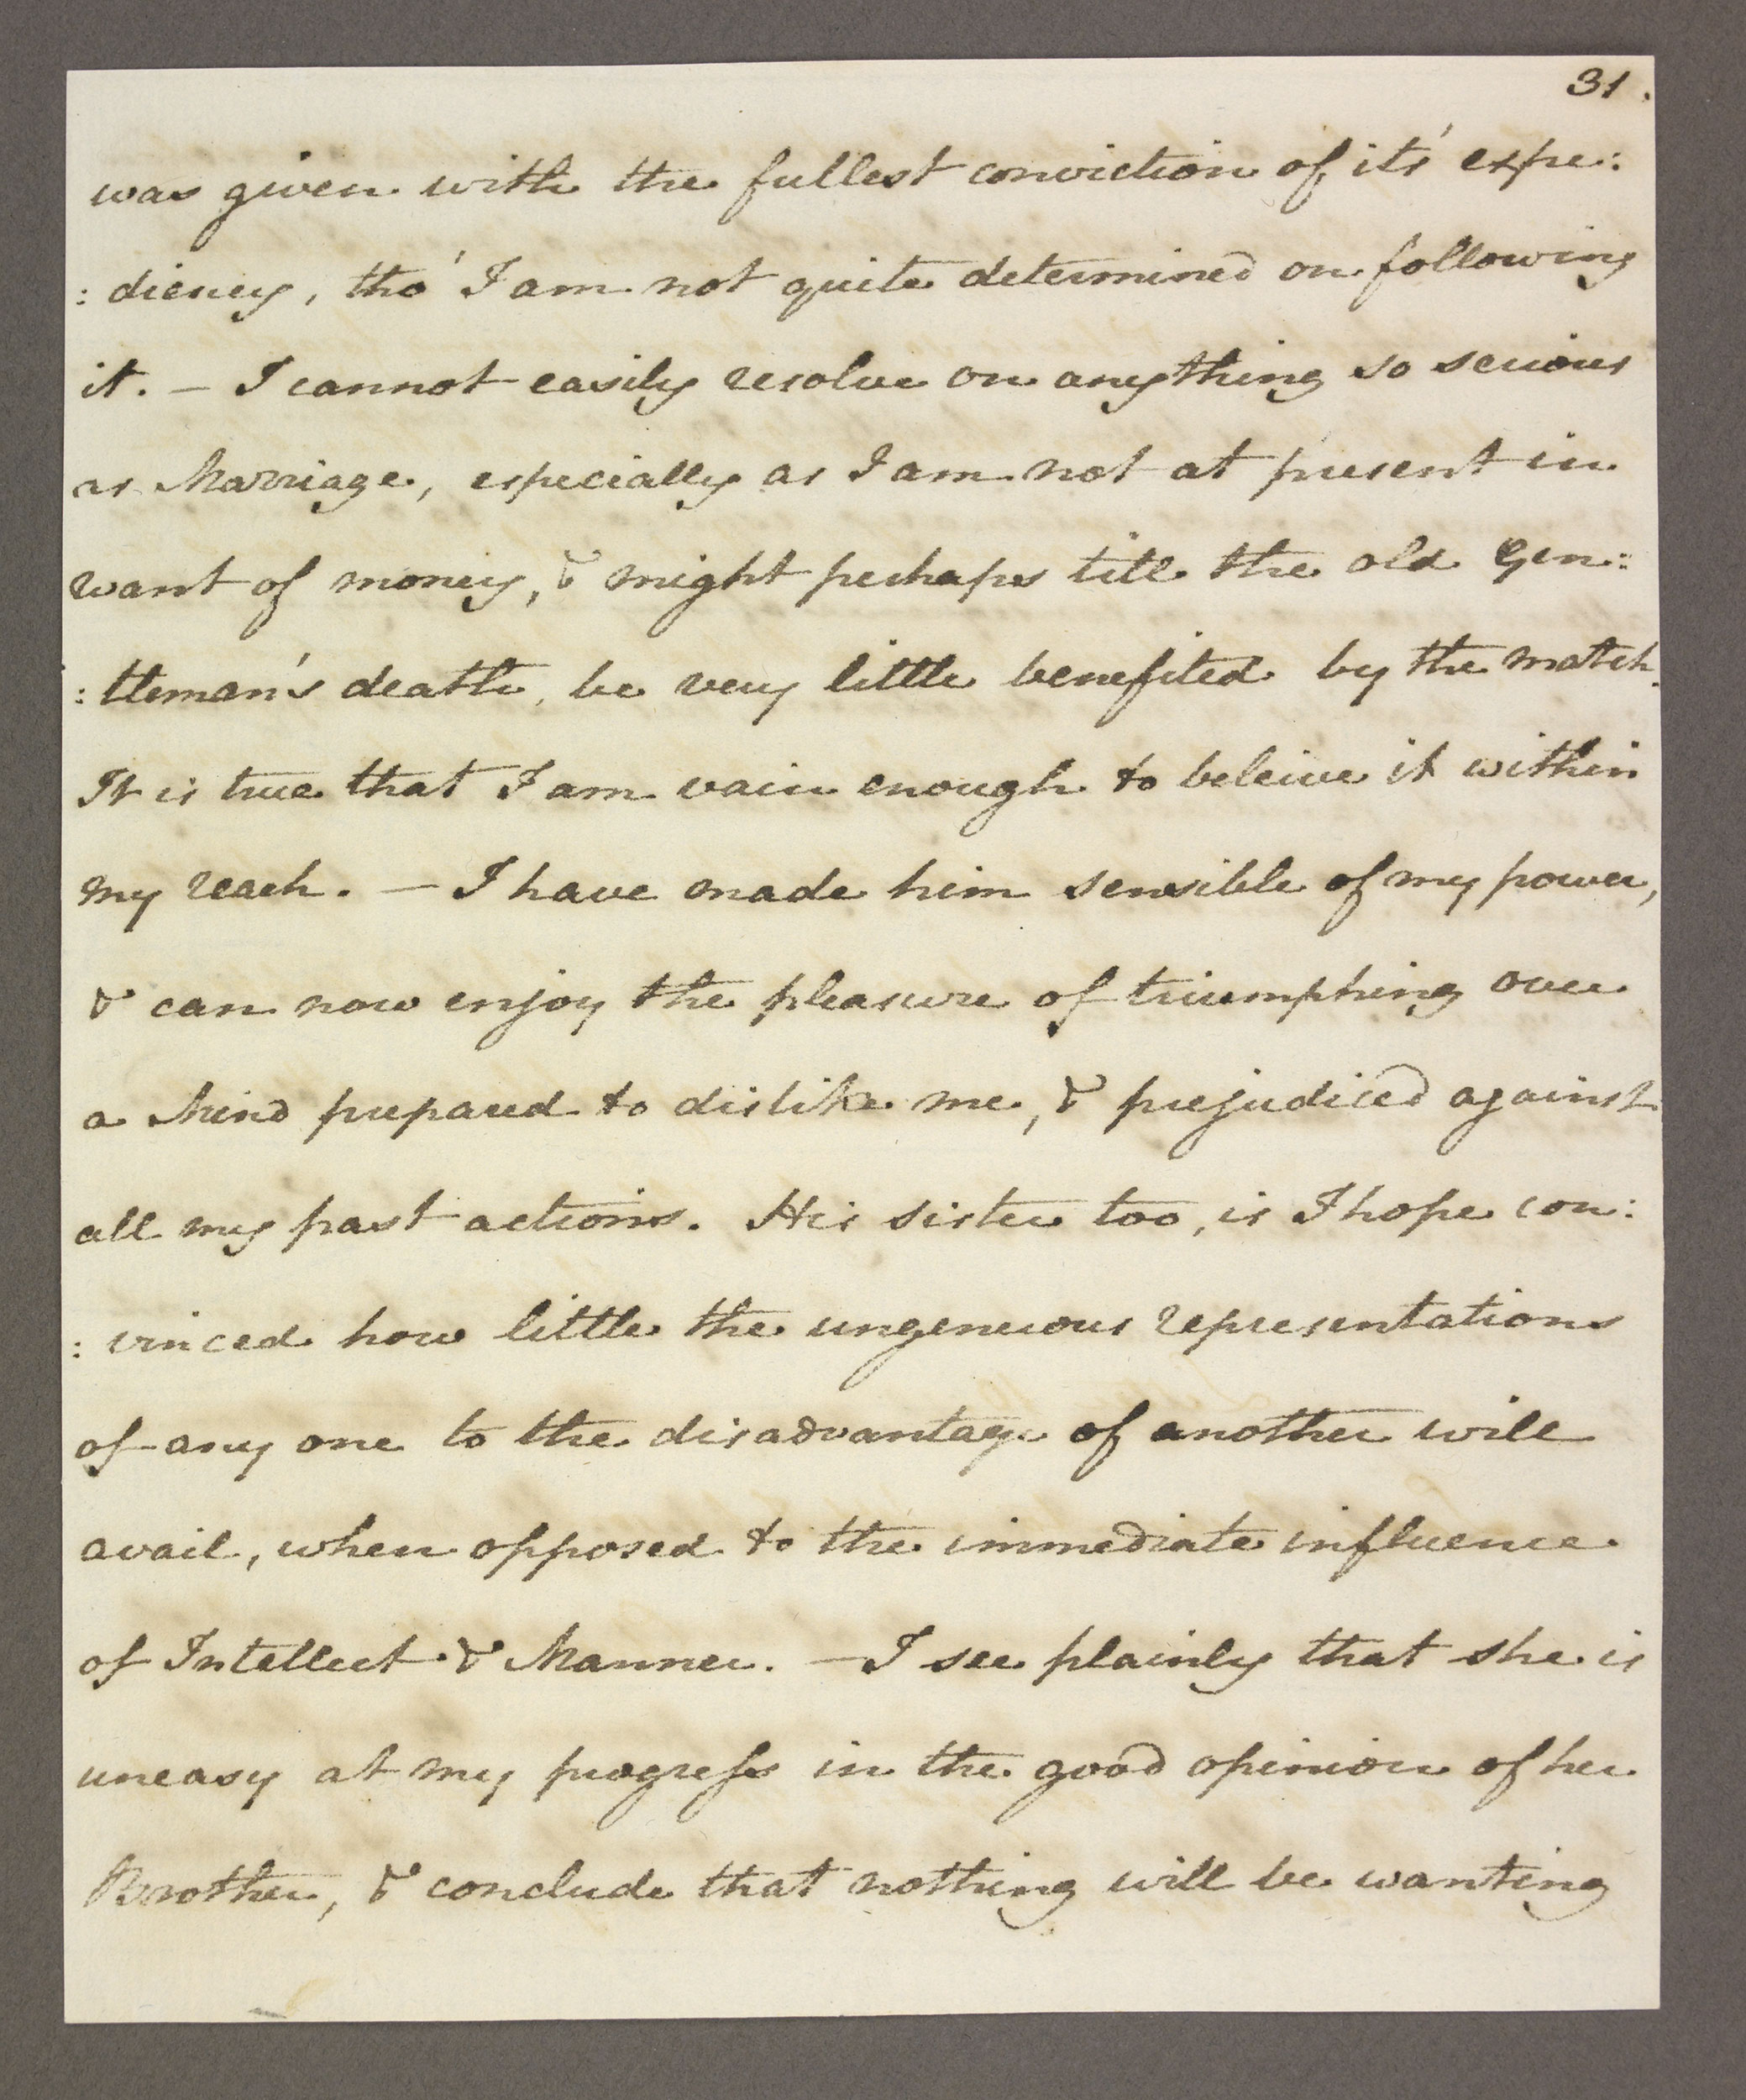 31.
was given with the fullest conviction of it's expe:
: diency, tho' I am not quite determined on following
it. — I cannot easily resolve on anything so serious
as Marriage, especially as I am not at present in
want of money, & might perhaps till the old Gen:
: tleman's death, be very little benefited by the match.
It is true that I am vain enough to beleive it within
my reach. — I have made him sensible of my power,
& can now enjoy the pleasure of triumphing over
a Mind prepared to dislike me, & prejudiced against
all my past actions. His sister too, is I hope con:
: vinced how little the ungenerous representations
of any one to the disadvantage of another will
avail, when opposed to the immediate influence
of Intellect & Manner. — I see plainly that she is
uneasy at my progress in the good opinion of her
Brother, & conclude that nothing will be wanting